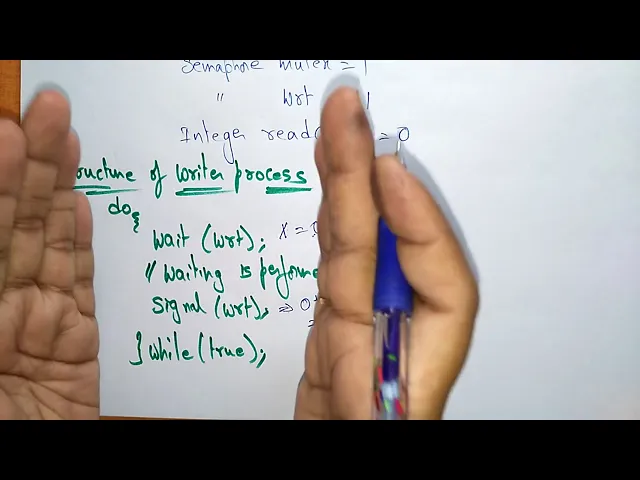 Semaphore mutex = 1
" wrt 1
Integer read = 0
ructure of writer process
do {
wait (wrt); X =
// waiting is performe
signal (wrt); ⇒ 0+
=
} while (true);